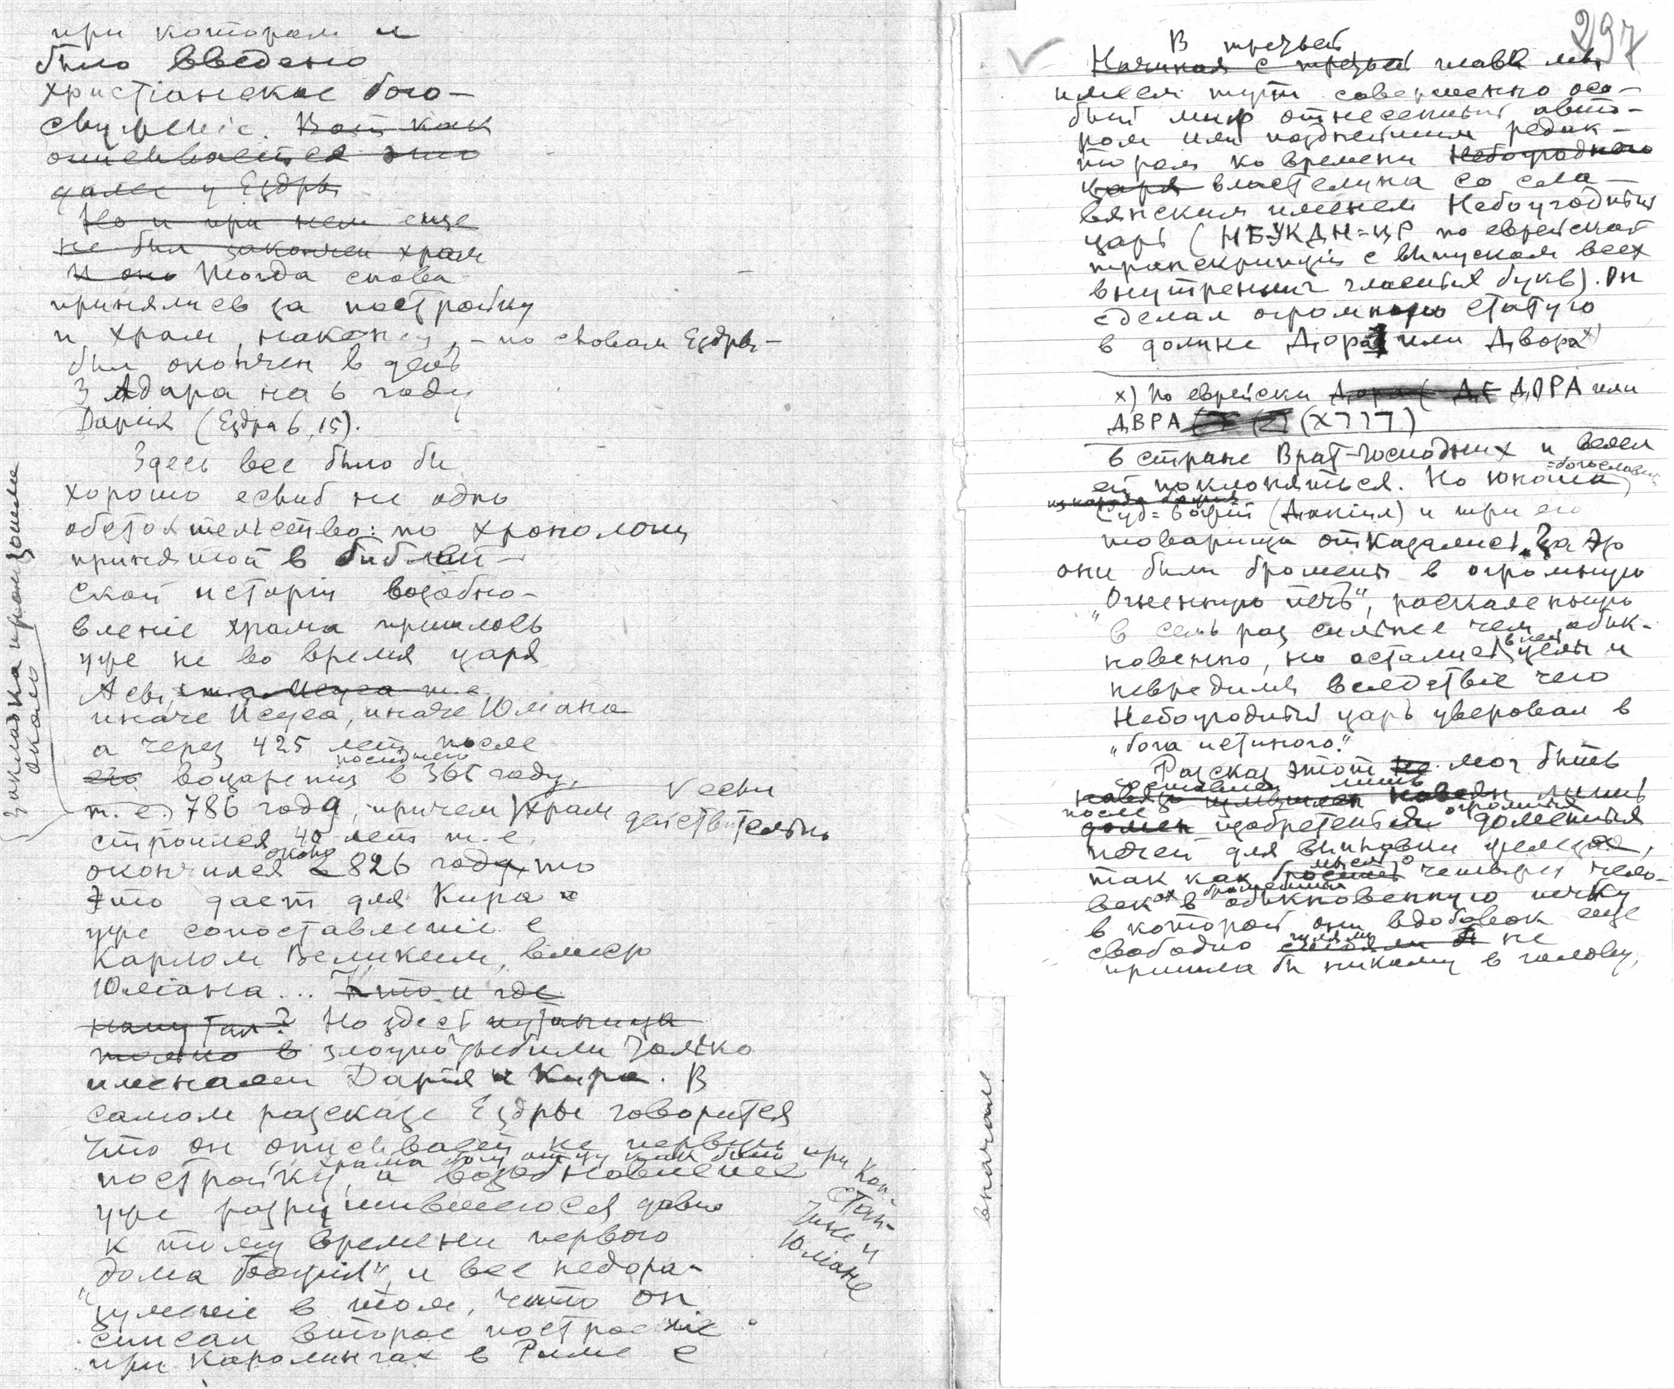 при котором и
было введено
христіанское бого-
служеніе. Вот как
описывается это
далее у Ездры
Но и при нем еще
не был закончен храм
И оно Тогда снова
принялись за постройку
и храм, наконец, – по словам Ездры –
был окончен в день
3 Адара на 6 году
Дарія (Ездра 6,15).
Здесь все было бы
хорошо еслиб не одно
обстоятельство: по хронологіи
принятой в библей-
ской исторіи возобно-
вленіе храма пришлось
уже не во время царя
Асы,
иначе Исуса, иначе Юліана
а через 425 лет после
последнего
его воцаренія в 361 году,
т. е. 786 года, причем храм
V если
действительно
строился 40 лет т. е.
около
окончился 826 года, то
Это дает для Кира
уже сопоставленіе с
Карлом Великим, вместо
Юліана... Кто и где
напутал? Но здесь путаница
только в злоупотребили только
именами Дарія и Кира. В
самом разсказе Ездры говорится
что он описывает не первую
храма
постройку, а возобновленіе
при Кон-
стан-
тине и
Юліане
уже разрушившегося давно
к тому времени первого
„дома божія", и все недора-
зуменіе в том, что он
списал второе построеніе
при Каролингах в Риме с
закладка произошла
около
297
В третьей
Начиная с третьей главе мы
имеем тут совершенно осо-
бый миф отнесенный авто-
ром или позднейшим редак-
тором ко времени Небоугодного
царя властелина со сла-
вянским именем Небоугодный
царь (НБУКДН=ЦР по еврейской
транскрипціи с выпуском всех
внутренних гласных букв). Он
сделал огромную статую
в долине Дора или Двора х)
х) По еврейски Дора ДОРА или
ДВРА (אררד)
в стране Врат-Господних и велел
ей поклоняться. Но юноша
=богослов
Суд=божій (Даніил) и три его
товарища отказались. За это
они были брошены в огромную
„Огненную печь", раскаленную
в семь раз сильнее чем обык-
новенно, но остались целы и
в ней
невредимы вследствіе чего
Небоугодный царь уверовал в
„бога истиного."
Разсказ этот не мог быть
составлен лишь
после изобретенія огромных доменных
печей для выплавки железа,
так как мысль о четырех чело-
веках брошенных в обыкновенную печку
в которой они вдобавок еще
свободно гуляли не
пришла бы никому в голову,
вначале